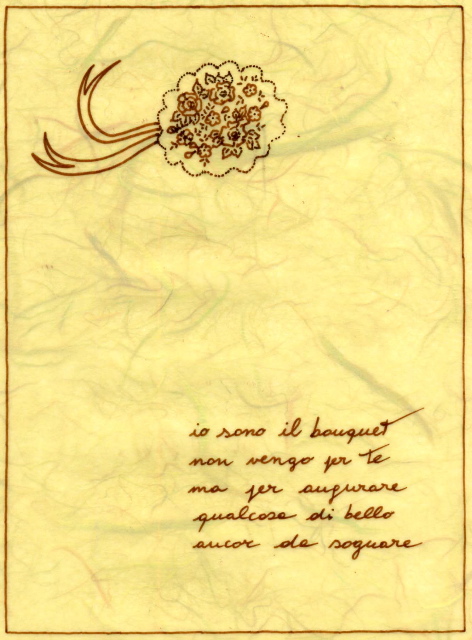 io sono il bouquet
non vengo per te
ma per augurare
qualcosa di bello
ancor da sognare